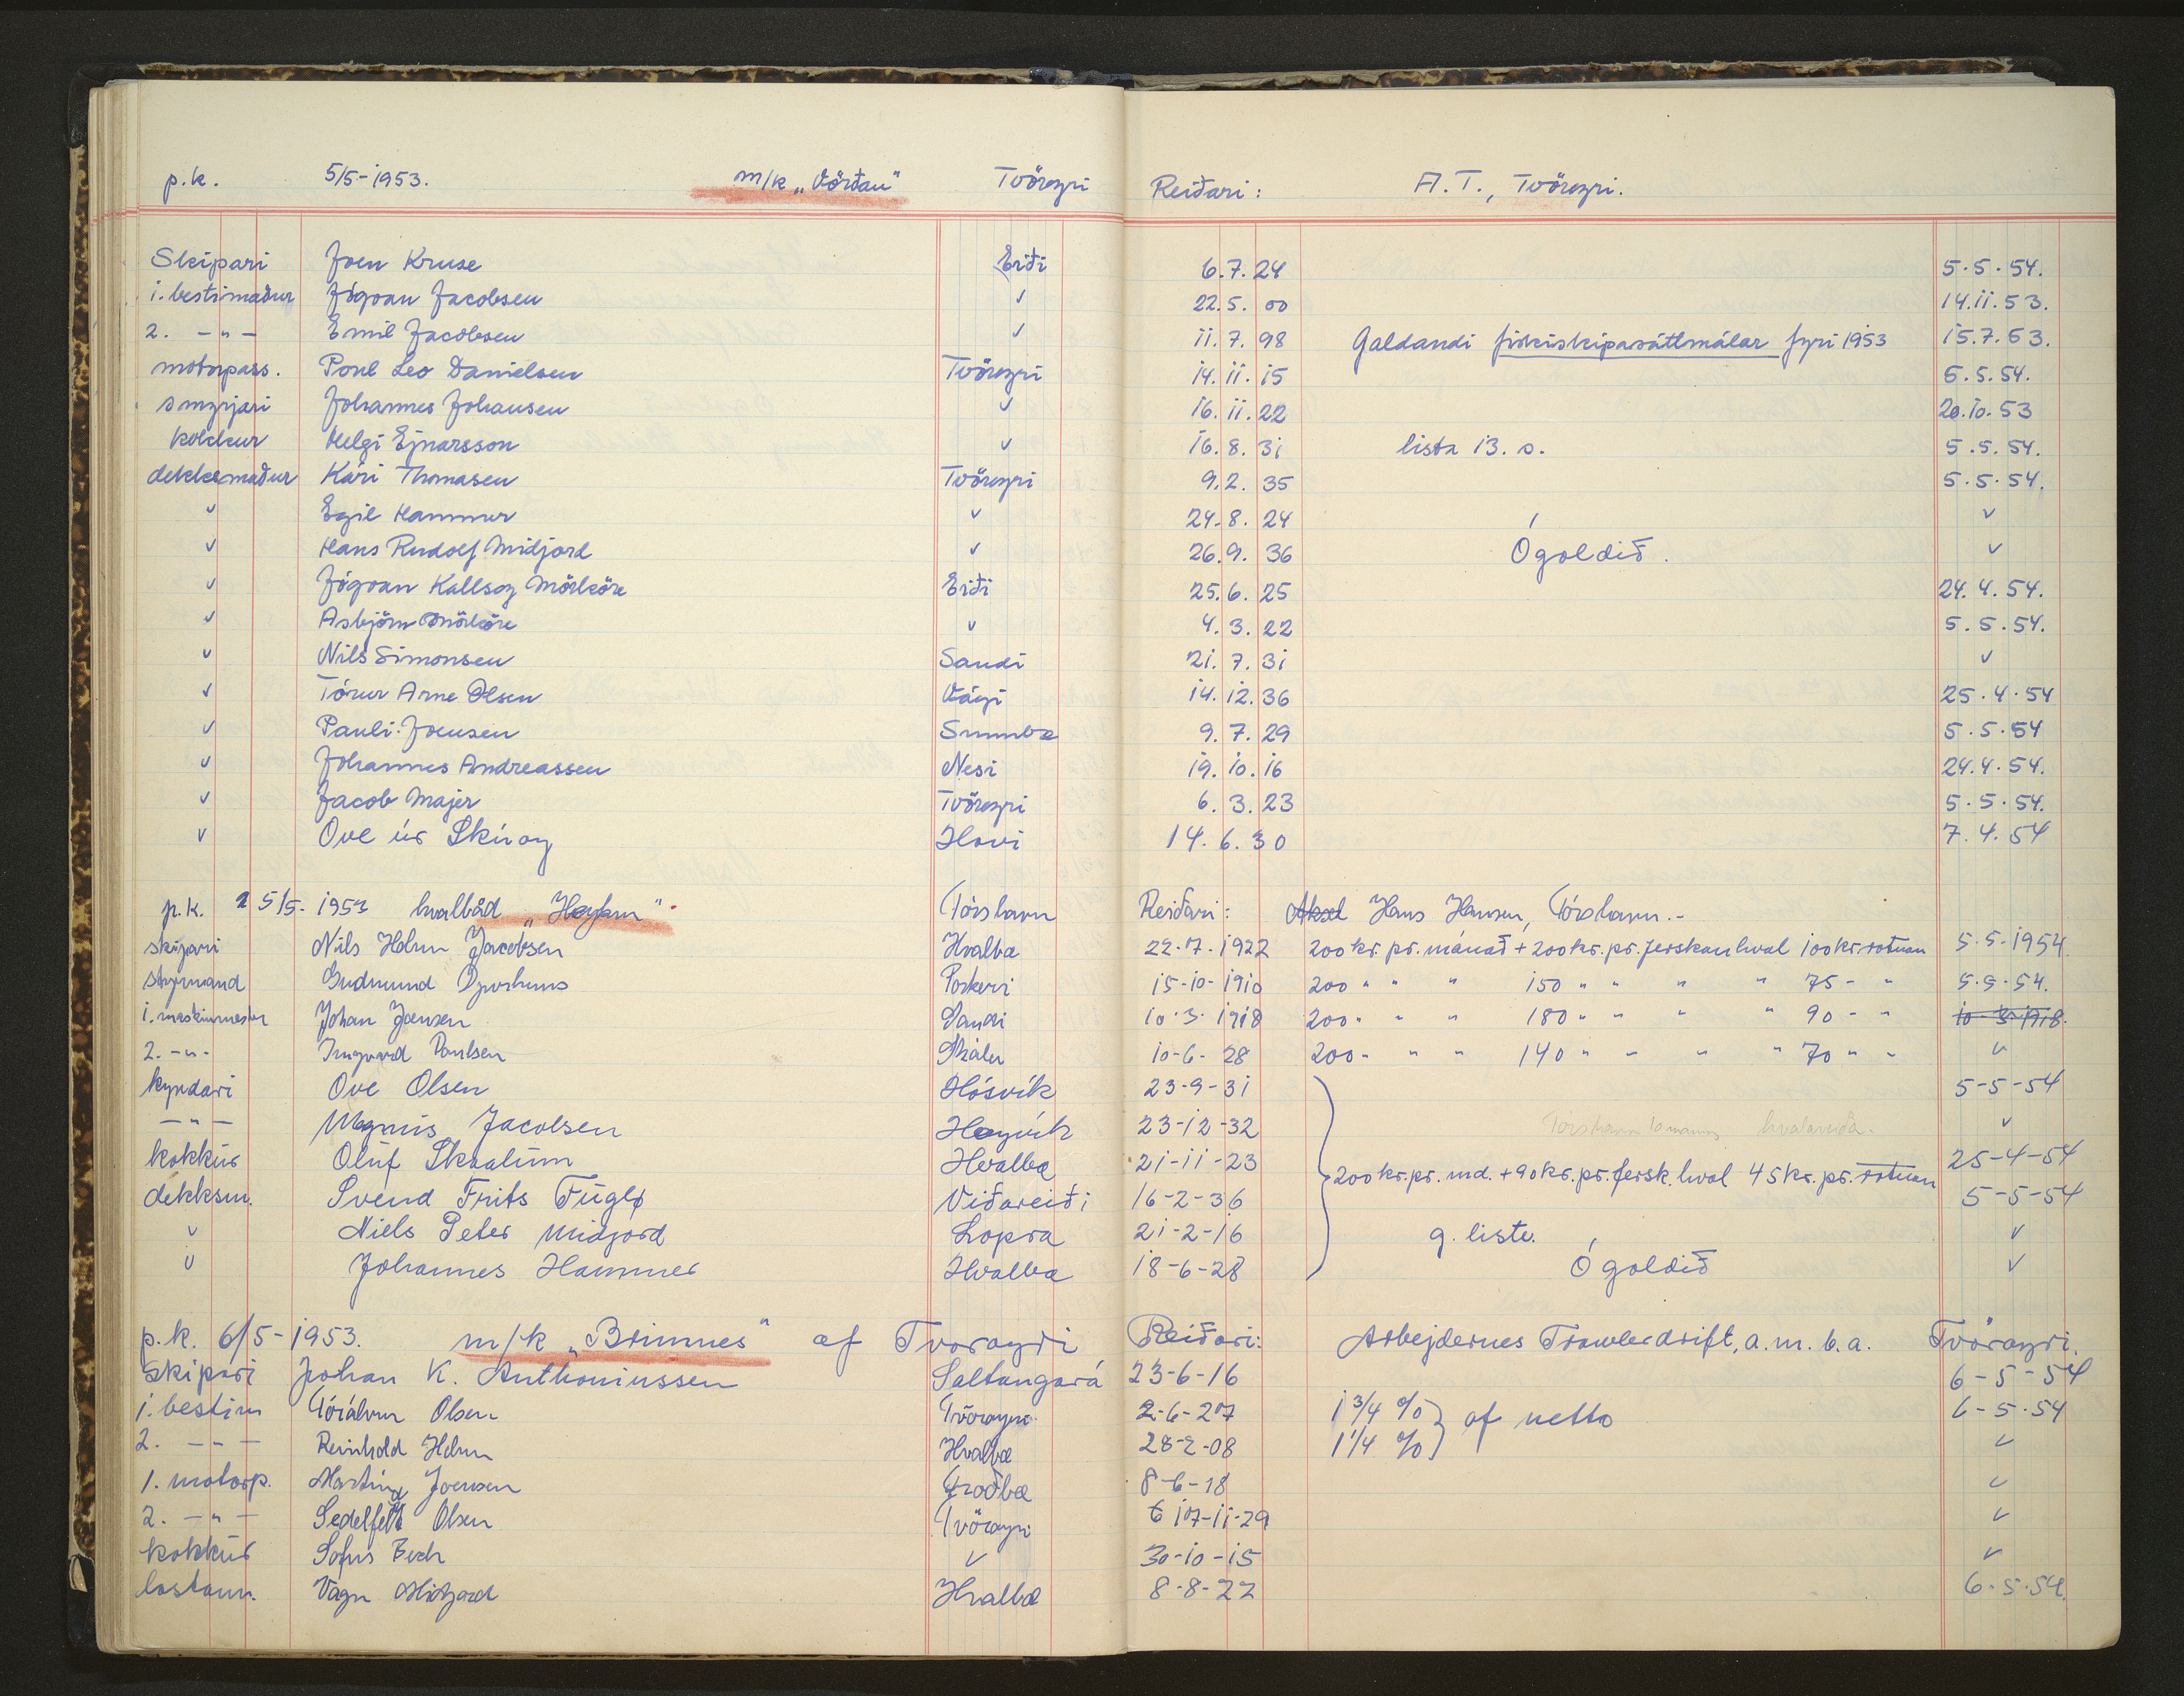 p.k. 5/5-1953. m/k „Vörðan" Tvöroyri Reiðari: A.T., Tvöroyri.
Skipari Joen Kruse Eiði 6.7.24 5.5.54.
1. bestimaður Jógvan Jacobsen ✓ 22.5.00 14.11.53.
2. –"– Emil Jacobsen ✓ 11.7.98 Galdandi fiskiskipasáttmálar fyri 1953 15.7.53.
motorpass. Poul Leo Danielsen Tvöroyri 14.11.15 5.5.54.
smyrjari Johannes Johansen ✓ 16.11.22 20.10.53
kokkur Helgi Ejnarsson ✓ 16.8.31 lista 13. s. 5.5.54.
dekksmaður Kári Thomasen Tvöroyri 9.2.35 5.5.54.
✓ Egil Hammer ✓ 24.8.24 ✓
✓ Hans Rudolf Midjord ✓ 26.9.36 Ógoldið. ✓
✓ Jógvan Kallsoy Mörköre Eiði 25.6.25 24.4.54.
✓ Asbjörn Mörköre ✓ 4.3.22 5.5.54.
✓ Nils Simonsen Sandi 21.7.31 ✓
✓ Tórur Arne Olsen Vági 14.12.36 25.4.54
✓ Pauli Joensen Sumba 9.7.29 5.5.54
✓ Johannes Andreassen Nesi 19.10.16 24.4.54.
✓ Jacob Majer Tvöroyri 6.3.23 5.5.54.
✓ Ove úr Skúvoy Hovi 14.6.30 7.4.54
p.k. 5/5-1953 hvalbåd „Høyfarm" Tórshavn Reiðari: Aksel Hans Hansen, Tórshavn.-
skipari Nils Holm Jacobsen Hvalba 22.7.1922 200 kr. pr. mánað + 200 kr. pr. ferskan hval 100 kr. rotnan 5.5.1954
styrmand Gudmund Djurhuus Porkeri 15-10-1910 200 " " " 150 " " " " 75 - " 5.5.54.
1. maskinmester Johan Joensen Sandi 10.3.1918 200 " " " 180 " " " " 90 - " 10-3-1918.
2. -"- Ingvard Poulsen Skála 10-6-28 200 " " " 140 " " " " 70 " " ✓
kyndari Ove Olsen Hósvík 23-9-31 5-5-54
–"– Magnus Jacobsen Hoyvík 23-12-32 Tórshavn hvalaveiða. ✓
kokkur Oluf Skaalum Hvalba 21-11-23 25-4-54
dekksm. Svend Frits Fuglø Viðareiði 16-2-36 200 kr. pr. md. + 90 kr. pr. fersk. hval 45 kr. pr. rotnan 5-5-54
✓ Niels Peter Midjord Lopra 21-2-16 9. liste. ✓
✓ Johannes Hammer Hvalba 18-6-28 Ógoldið ✓
p.k. 6/5-1953. m/k „Brimnes" af Tvøroyri Reiðari: Arbejdernes Trawlerdrift, a.m.b.a. Tvöroyri.
skipari Johan K. Anthoniussen Saltangará 23-6-16 6-5-54
1. bestim Tórálvur Olsen Tvöroyri 2-6-27 1 3/4 % } af netto 6-5-54
2. –"– Reinhold Holm Hvalba 28-2-08 1 1/4 % } ✓
1. motorp. Martin Joensen Froðba 8-6-18 ✓
2. –"– Sedelfeldt Olsen Tvöroyri 17-11-29 ✓
kokkur Sofus Bech ✓ 30-10-15 ✓
lastam. Vagn Midjord Hvalba 8-8-22 6.5.54.